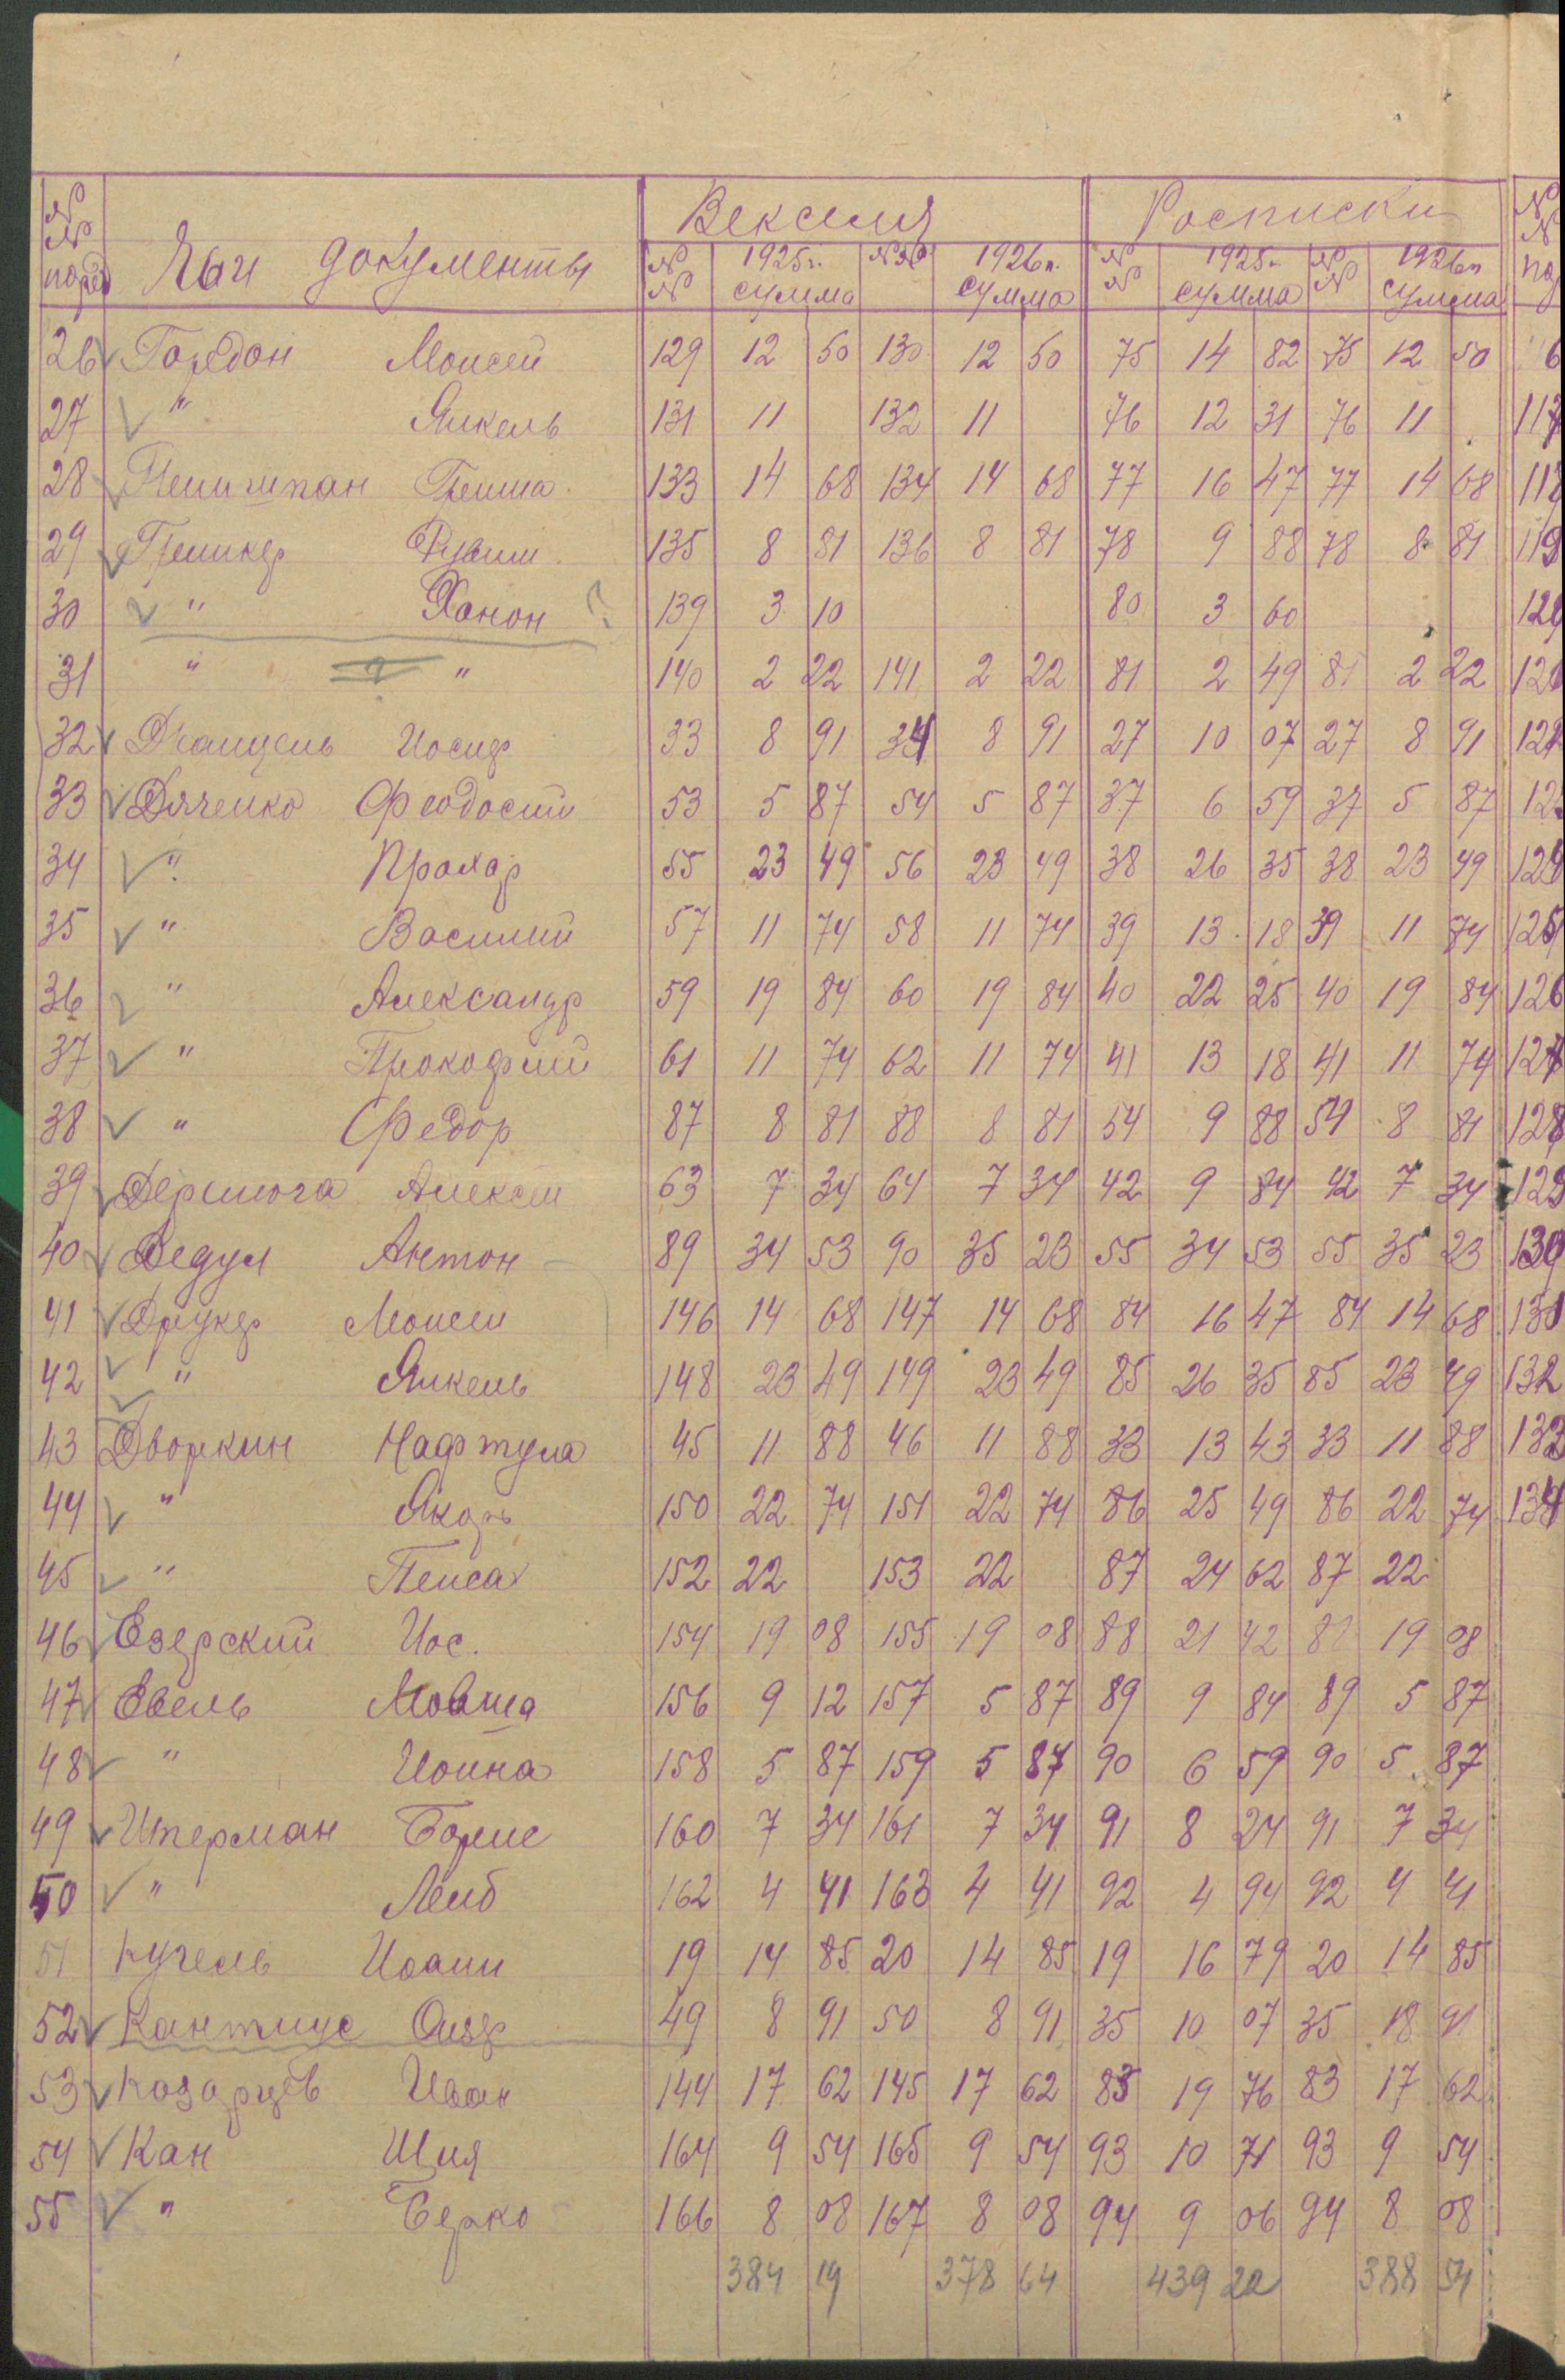 №№ поряд Чьи документы Векселя Росписки №№ по
№№ 1925г. сумма №№ 1926г. сумма №№ 1925г. сумма №№ 1926г. сумма
26 Гордон Моисей 129 12 50 130 12 50 75 14 82 75 12 50
27 " Янкель 131 11 132 11 76 12 31 76 11 117
28 Гриша 133 14 68 134 14 68 77 16 47 77 14 68 118
29 Рувим 135 8 81 136 8 81 78 9 88 78 8 81 119
30 " Ханон ? 139 3 10 80 3 60 120
31 " ? " 140 2 22 141 2 22 81 2 49 81 2 22 121
32 Иосиф 33 8 91 34 8 91 27 10 07 27 8 91 122
33 Дяченко Феодосий 53 5 87 54 5 87 37 6 59 37 5 87 123
34 " Прохор 55 23 49 56 23 49 38 26 35 38 23 49 124
35 " Василий 57 11 74 58 11 74 39 13 18 39 11 74 125
36 " Александр 59 19 84 60 19 84 40 22 25 40 19 84 126
37 " Прокофий 61 11 74 62 11 74 41 13 18 41 11 74 127
38 " Федор 87 8 81 88 8 81 54 9 88 54 8 81 128
39 Алексей 63 7 34 64 7 34 42 9 84 42 7 34 129
40 Дедул Антон 89 34 53 90 35 23 55 34 53 55 35 23 130
41 Друкер Моисей 146 14 68 147 14 68 84 16 47 84 14 68 131
42 " Янкель 148 23 49 149 23 49 85 26 35 85 23 49 132
43 Дворкин Нафтула 45 11 88 46 11 88 33 13 43 33 11 88 133
44 " 150 22 74 151 22 74 86 25 49 86 22 74 134
45 " Пейса 152 22 153 22 87 24 62 87 22
46 Езерский Иос. 154 19 08 155 19 08 88 21 42 88 19 08
47 Евель Мовша 156 9 12 157 5 87 89 9 84 89 5 87
48 " Иоина 158 5 87 159 5 87 90 6 59 90 5 87
49 Итерман Борис 160 7 34 161 7 34 91 8 24 91 7 34
50 " Лейб 162 4 41 163 4 41 92 4 94 92 4 41
51 Кугель Иоанн 19 14 85 20 14 85 19 16 79 20 14 85
52 49 8 91 50 8 91 35 10 07 35 18 91
53 Козарцев Иван 144 17 62 145 17 62 83 19 76 83 17 62
54 Кан Шия 164 9 54 165 9 54 93 10 71 93 9 54
55 " Берко 166 8 08 167 8 08 94 9 06 94 8 08
384 19 378 64 439 22 388 54